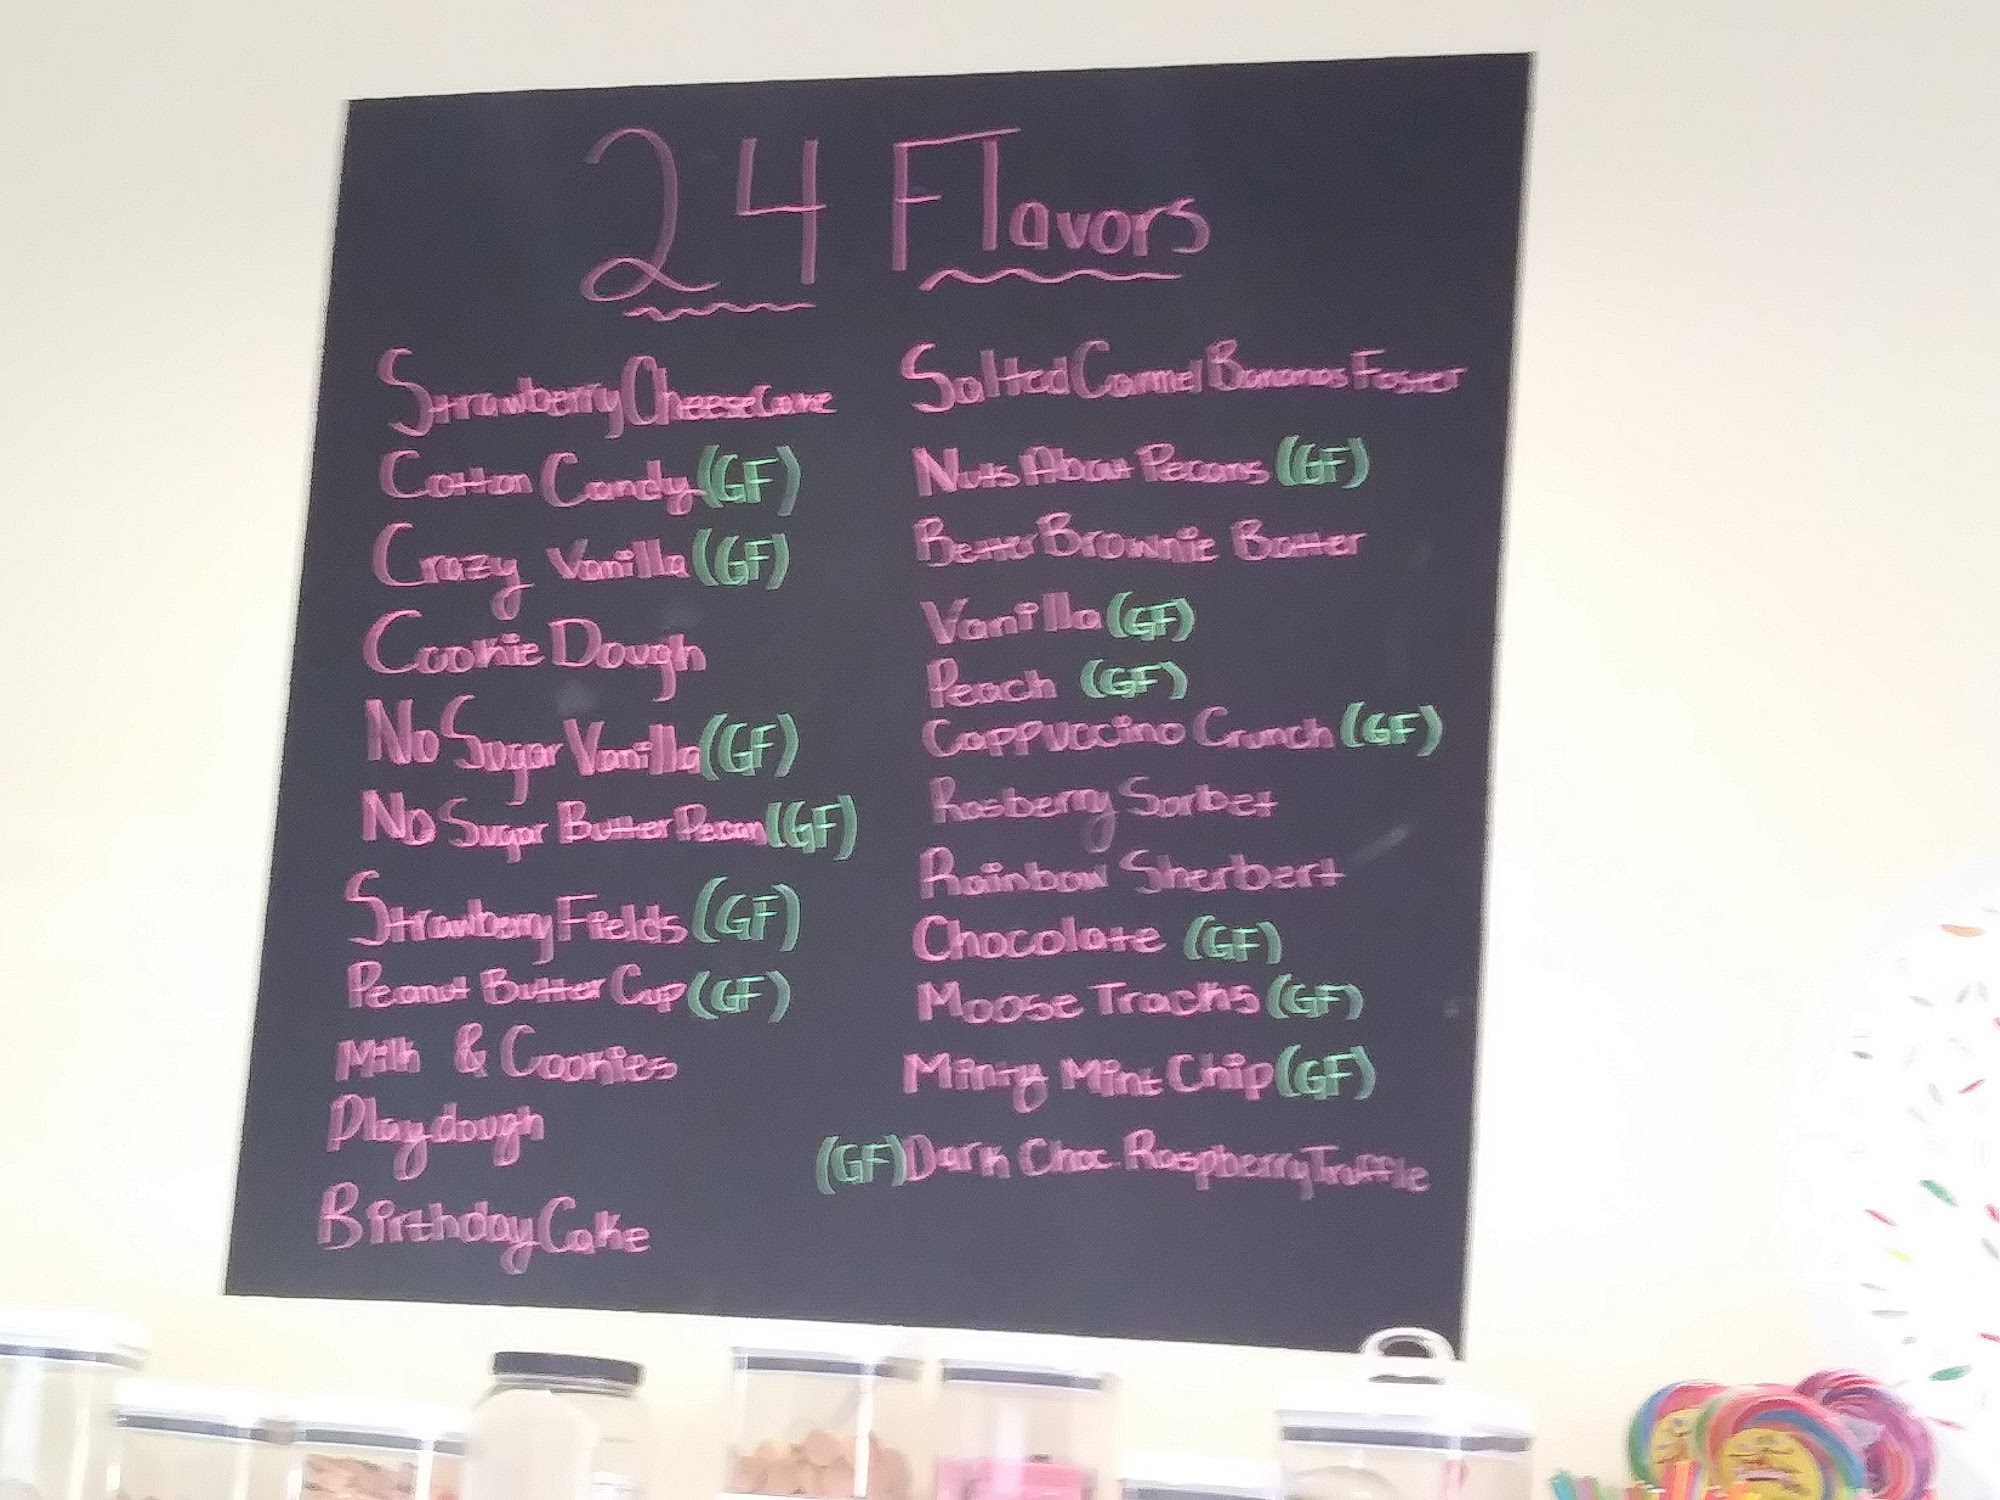 24 Flavors
Strawberry Cheesecake
Cotton Candy (GF)
Crazy Vanilla (GF)
Cookie Dough
No Sugar Vanilla (GF)
No Sugar Butter Pecan (GF)
Strawberry Fields (GF)
Peanut Butter Cup (GF)
Milk & Cookies
Playdough
Birthday Cake
Salted Carmel Bananas Foster
Nuts About Pecans (GF)
Better Brownie Batter
Vanilla (GF)
Peach (GF)
Cappuccino Crunch (GF)
Rasberry Sorbet
Rainbow Sherbert
Chocolate (GF)
Moose Tracks (GF)
Minty Mint Chip (GF)
(GF) Dark Choc. Raspberry Truffle